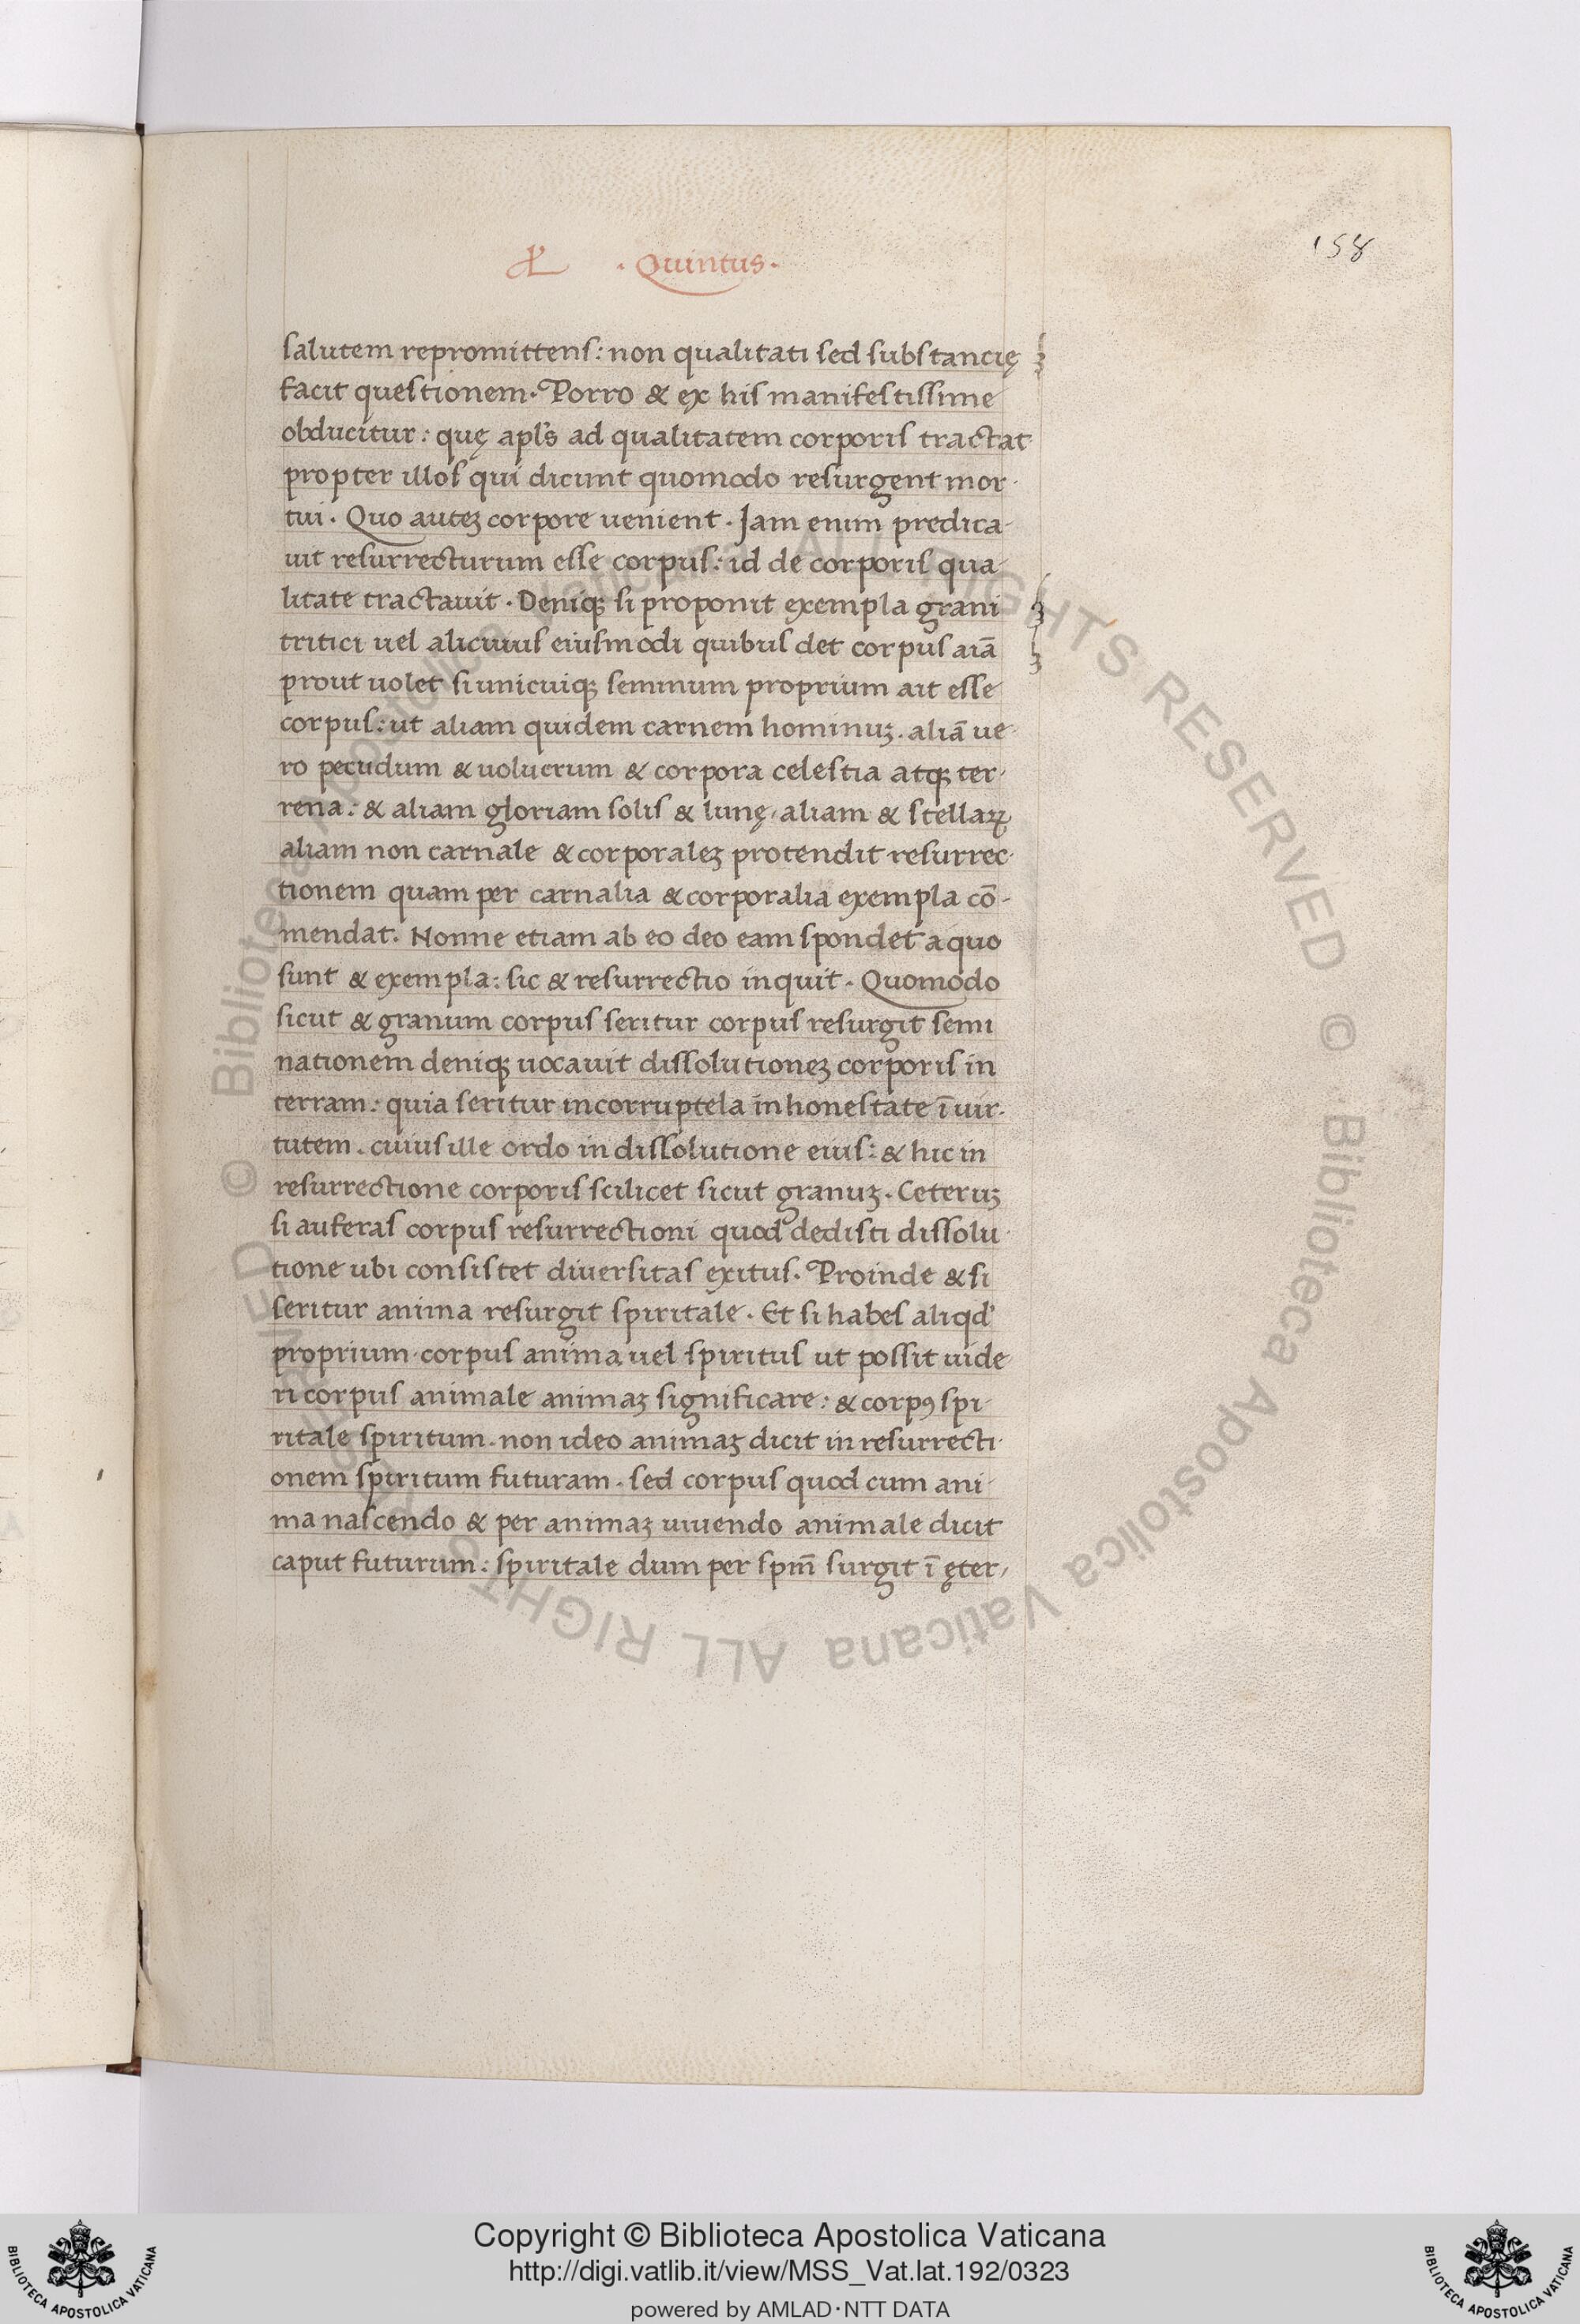 · Quintus ·
158
salutem repromittens: non qualitati sed substancię
facit questionem. Porro & ex his manifestissime
obducitur: quę apl's ad qualitatem corporis tractat
propter illos qui dicunt quomodo resurgent mor-
tui. Quo auteꝫ corpore uenient. Jam enim predica-
uit resurrecturum esse corpus: id de corporis qua-
litate tractauit. Deniqꝫ si proponit exempla grani
tritici uel alicuius eiusmodi quibus det corpus aiā
prout uolet si unicuiqꝫ seminum proprium ait esse
corpus: ut aliam quidem carnem hominuꝫ. aliā ue-
ro pecudum & uolucrum & corpora celestia atqꝫ ter-
rena: & aliam gloriam solis & lunę, aliam & stellaꝝ
aliam non carnale & corporaleꝫ protendit resurrec-
tionem quam per carnalia & corporalia exempla cō-
mendat. Nonne etiam ab eo deo eam spondet a quo
sunt & exempla: sic & resurrectio inquit. Quomodo
sicut & granum corpus seritur corpus resurgit semi
nationem deniqꝫ uocauit dissolutioneꝫ corporis in
terram: quia seritur incorruptela inhonestate ī uir-
tutem. cuius ille ordo in dissolutione eius: & hic in
resurrectione corporis scilicet sicut granuꝫ. Ceteruꝫ
si auferas corpus resurrectioni quod dedisti dissolu-
tione ubi consistet diuersitas exitus. Proinde & si
seritur anima resurgit spiritale. Et si habes aliqd'
proprium corpus anima uel spiritus ut possit uide
ri corpus animale animaꝫ significare: & corpꝰ spi-
ritale spiritum. non ideo animaꝫ dicit in resurrecti-
onem spiritum futuram. sed corpus quod cum ani-
ma nascendo & per animaꝫ uiuendo animale dicit
caput futurum: spiritale dum per spm̄ surgit ī ęter-
© Biblioteca Apostolica Vaticana ALL RIGHTS RESERVED © Biblioteca Apostolica Vaticana ALL RIGHTS RESERVED
BIBLIOTECA APOSTOLICA VATICANA
Copyright © Biblioteca Apostolica Vaticana
http://digi.vatlib.it/view/MSS_Vat.lat.192/0323
powered by AMLAD·NTT DATA
BIBLIOTECA APOSTOLICA VATICANA